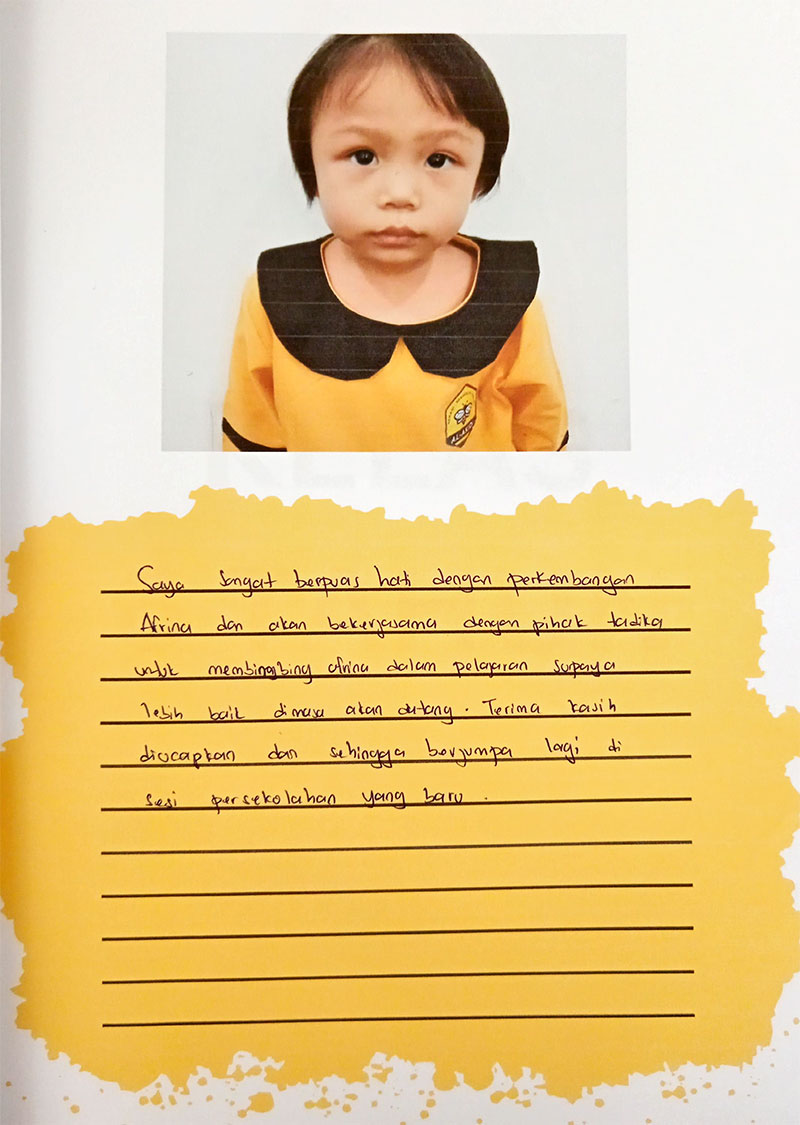 Saya sangat berpuas hati dengan perkembangan
Afrina dan akan bekerjasama dengan pihak tadika
untuk membimgbing afrina dalam pelajaran supaya
lebih baik dimasa akan datang. Terima kasih
diucapkan dan sehingga berjumpa lagi di
sesi persekolahan yang baru.